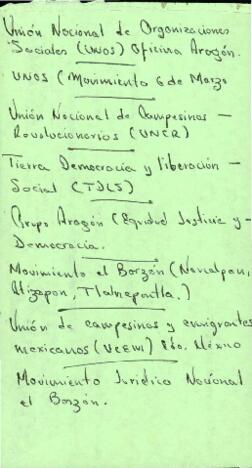 Unión Nacional de Organizaciones
Sociales (UNOS) Oficina Aragón.
UNOS (Movimiento 6 de Marzo
Unión Nacional de Campesinos -
Revolucionarios (UNCR)
Tierra Democracia y liberación -
Social (TDLS)
Grupo Aragón (Equidad Justicia y -
Democracia.
Movimiento el Barzón (Naucalpan,
Atizapan, Tlalnepantla.)
Unión de campesinos y emigrantes
mexicanos (UCEM) Edo. México
Movimiento Jurídico Nacional
el Barzón.